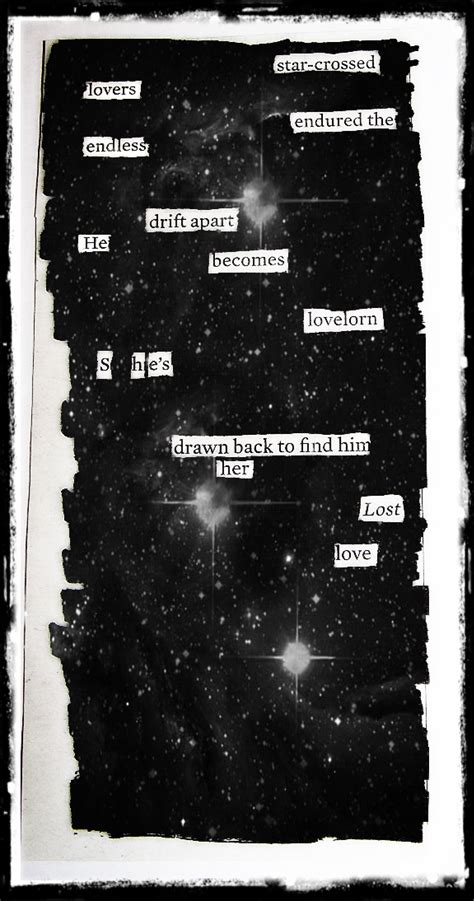 star-crossed
lovers
endured the
endless
drift apart
He
becomes
lovelorn
S h e's
drawn back to find him
her
Lost
love